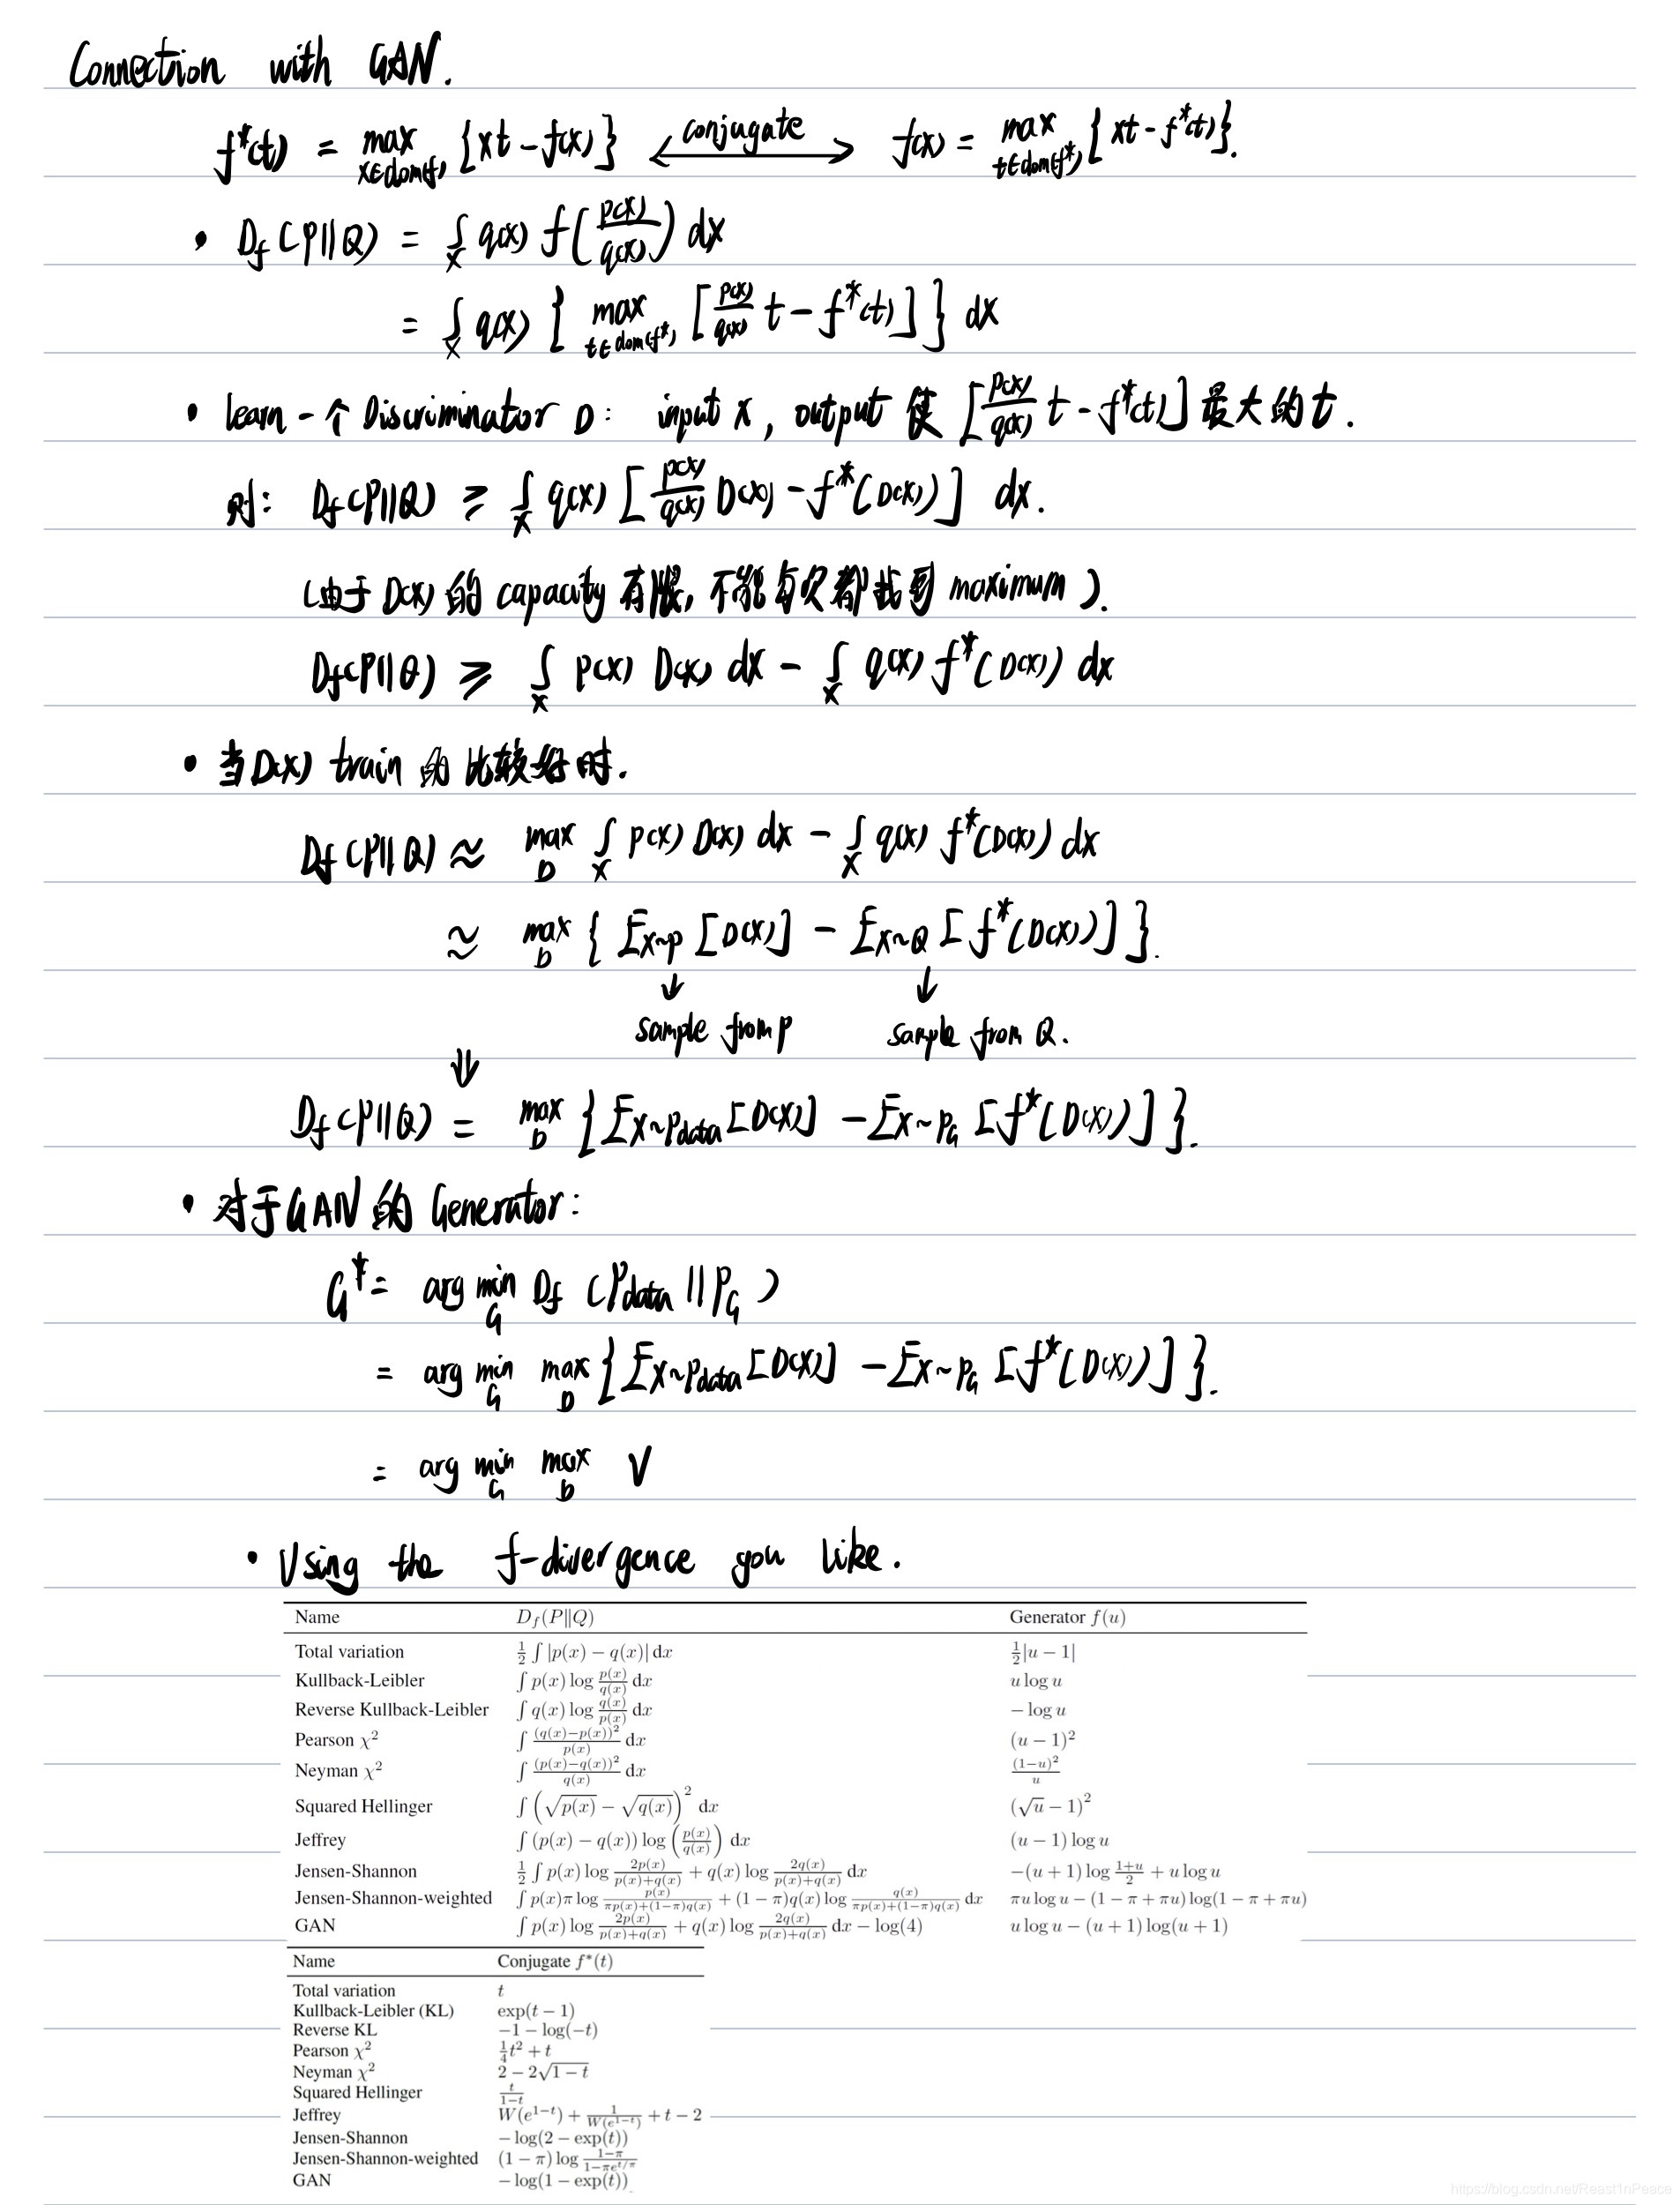 Connection with GAN.
f*(t) = max x∈dom(f) {xt - f(x)} ⟷ conjugate f(x) = max t∈dom(f*) {xt - f*(t)}.
• D_f(P||Q) = ∫_x q(x) f(p(x)/q(x)) dx
= ∫_x q(x) { max t∈dom(f*) [p(x)/q(x) t - f*(t)] } dx
• learn 一个 Discriminator D: input x, output 使 [p(x)/q(x) t - f*(t)] 最大的 t.
则: D_f(P||Q) ≥ ∫_x q(x) [p(x)/q(x) D(x) - f*(D(x))] dx.
(由于 D(x) 的 capacity 有限, 不能每次都找到 maximum).
D_f(P||Q) ≥ ∫_x p(x) D(x) dx - ∫_x q(x) f*(D(x)) dx
• 当 D(x) train 的比较好时.
D_f(P||Q) ≈ max_D ∫_x p(x) D(x) dx - ∫_x q(x) f*(D(x)) dx
≈ max_D { E_x~p [D(x)] - E_x~Q [f*(D(x))] }.
↓ ↓
sample from P sample from Q.
⇓
D_f(P||Q) = max_D {E_x~Pdata [D(x)] - E_x~P_G [f*(D(x))] }.
• 对于GAN的 Generator:
G* = arg min_G D_f (P_data || P_G)
= arg min_G max_D {E_x~Pdata [D(x)] - E_x~P_G [f*(D(x))] }.
= arg min_G max_D V
• Using the f-divergence you like.
Name D_f(P‖Q) Generator f(u)
Total variation 1/2 ∫ |p(x) − q(x)| dx 1/2|u − 1|
Kullback-Leibler ∫ p(x) log p(x)/q(x) dx u log u
Reverse Kullback-Leibler ∫ q(x) log q(x)/p(x) dx − log u
Pearson χ² ∫ (q(x)−p(x))²/p(x) dx (u − 1)²
Neyman χ² ∫ (p(x)−q(x))²/q(x) dx (1−u)²/u
Squared Hellinger ∫ (√p(x) − √q(x))² dx (√u − 1)²
Jeffrey ∫ (p(x) − q(x)) log (p(x)/q(x)) dx (u − 1) log u
Jensen-Shannon 1/2 ∫ p(x) log 2p(x)/(p(x)+q(x)) + q(x) log 2q(x)/(p(x)+q(x)) dx −(u + 1) log (1+u)/2 + u log u
Jensen-Shannon-weighted ∫ p(x)π log p(x)/(πp(x)+(1−π)q(x)) + (1 − π)q(x) log q(x)/(πp(x)+(1−π)q(x)) dx πu log u − (1 − π + πu) log(1 − π + πu)
GAN ∫ p(x) log 2p(x)/(p(x)+q(x)) + q(x) log 2q(x)/(p(x)+q(x)) dx − log(4) u log u − (u + 1) log(u + 1)
Name Conjugate f*(t)
Total variation t
Kullback-Leibler (KL) exp(t − 1)
Reverse KL −1 − log(−t)
Pearson χ² 1/4 t² + t
Neyman χ² 2 − 2√(1 − t)
Squared Hellinger t/(1−t)
Jeffrey W(e^(1−t)) + 1/W(e^(1−t)) + t − 2
Jensen-Shannon − log(2 − exp(t))
Jensen-Shannon-weighted (1 − π) log (1−π)/(1−πe^(t/π))
GAN − log(1 − exp(t))
https://blog.csdn.net/Reast1nPeace